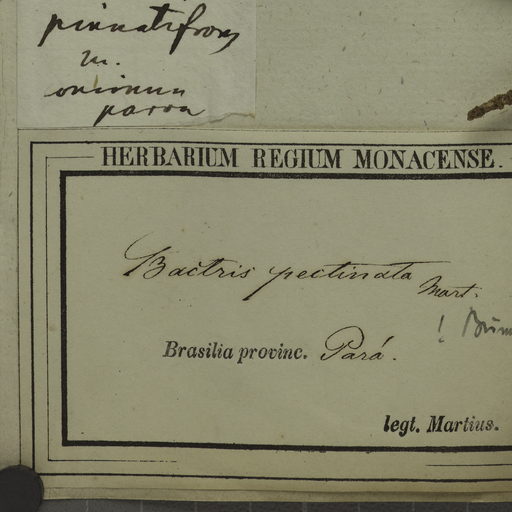 pinnatifrons
m.
parva
HERBARIUM REGIUM MONACENSE.
Bactris pectinata Mart.
! Bür
Brasilia provinc. Pará.
legt. Martius.